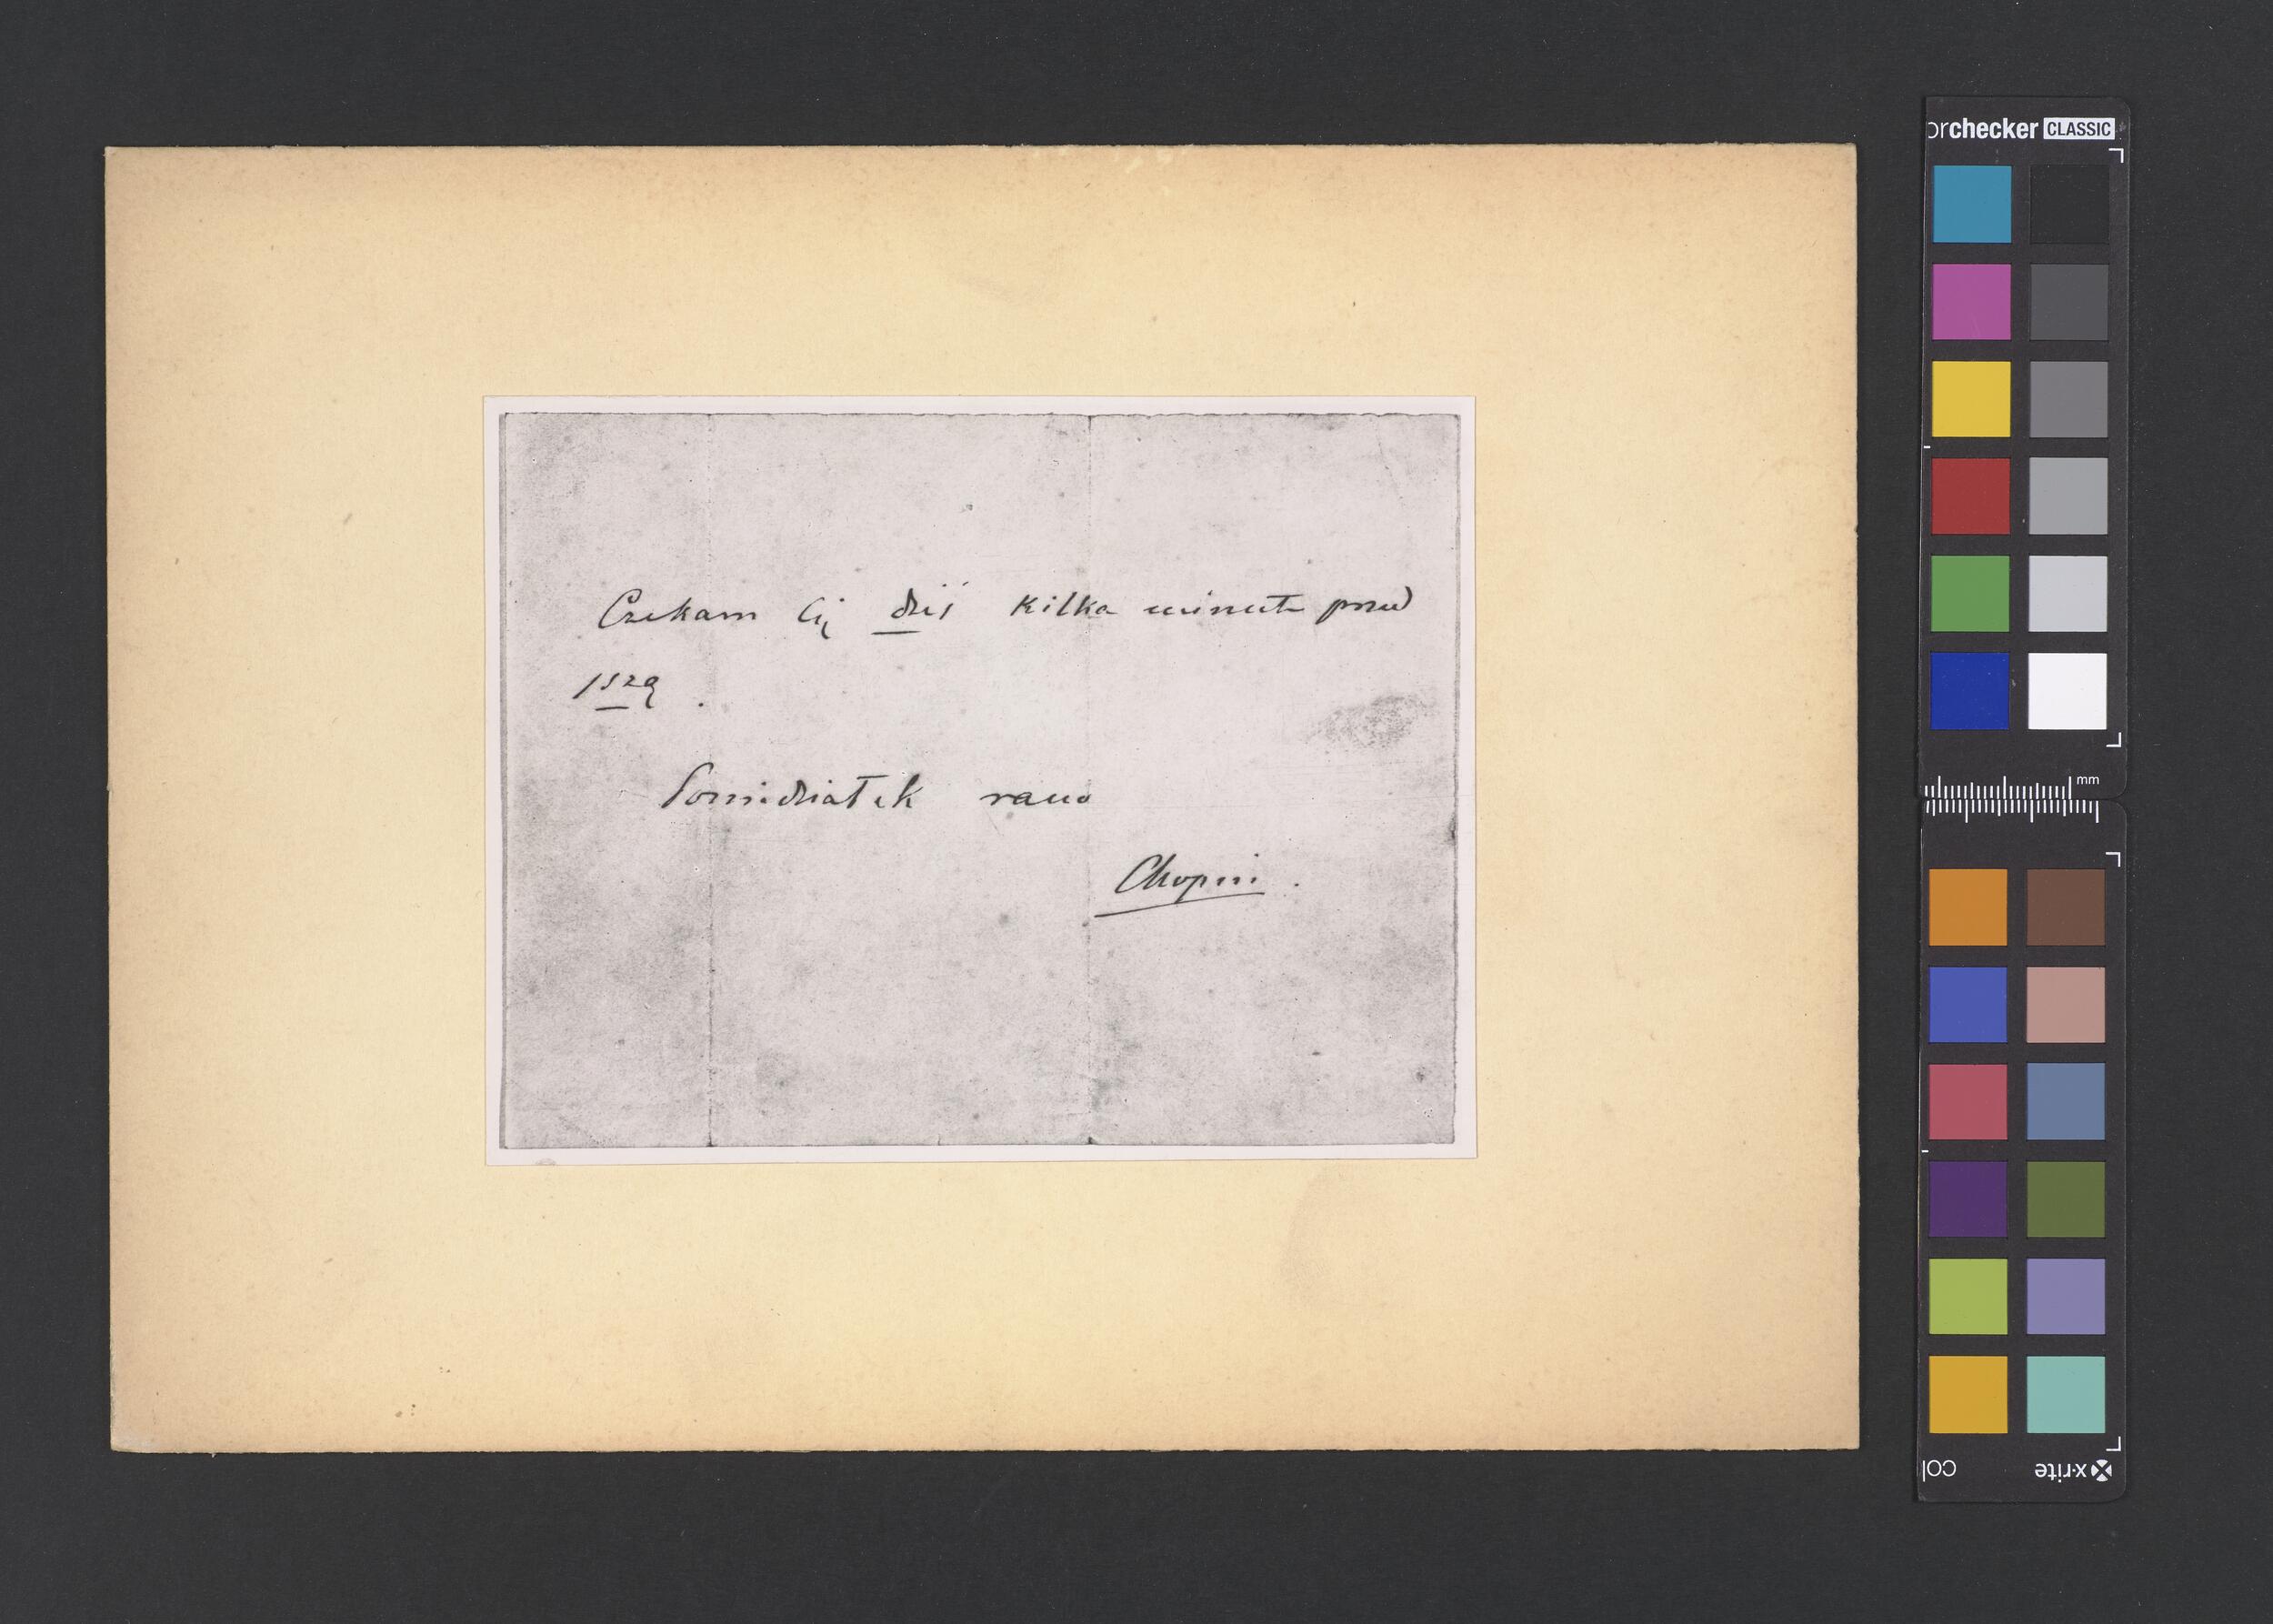 Czekam Cię dziś kilka minut przed
1szą.
Poniedziałek rano
Chopin.
orchecker CLASSIC
mm
x-rite
col